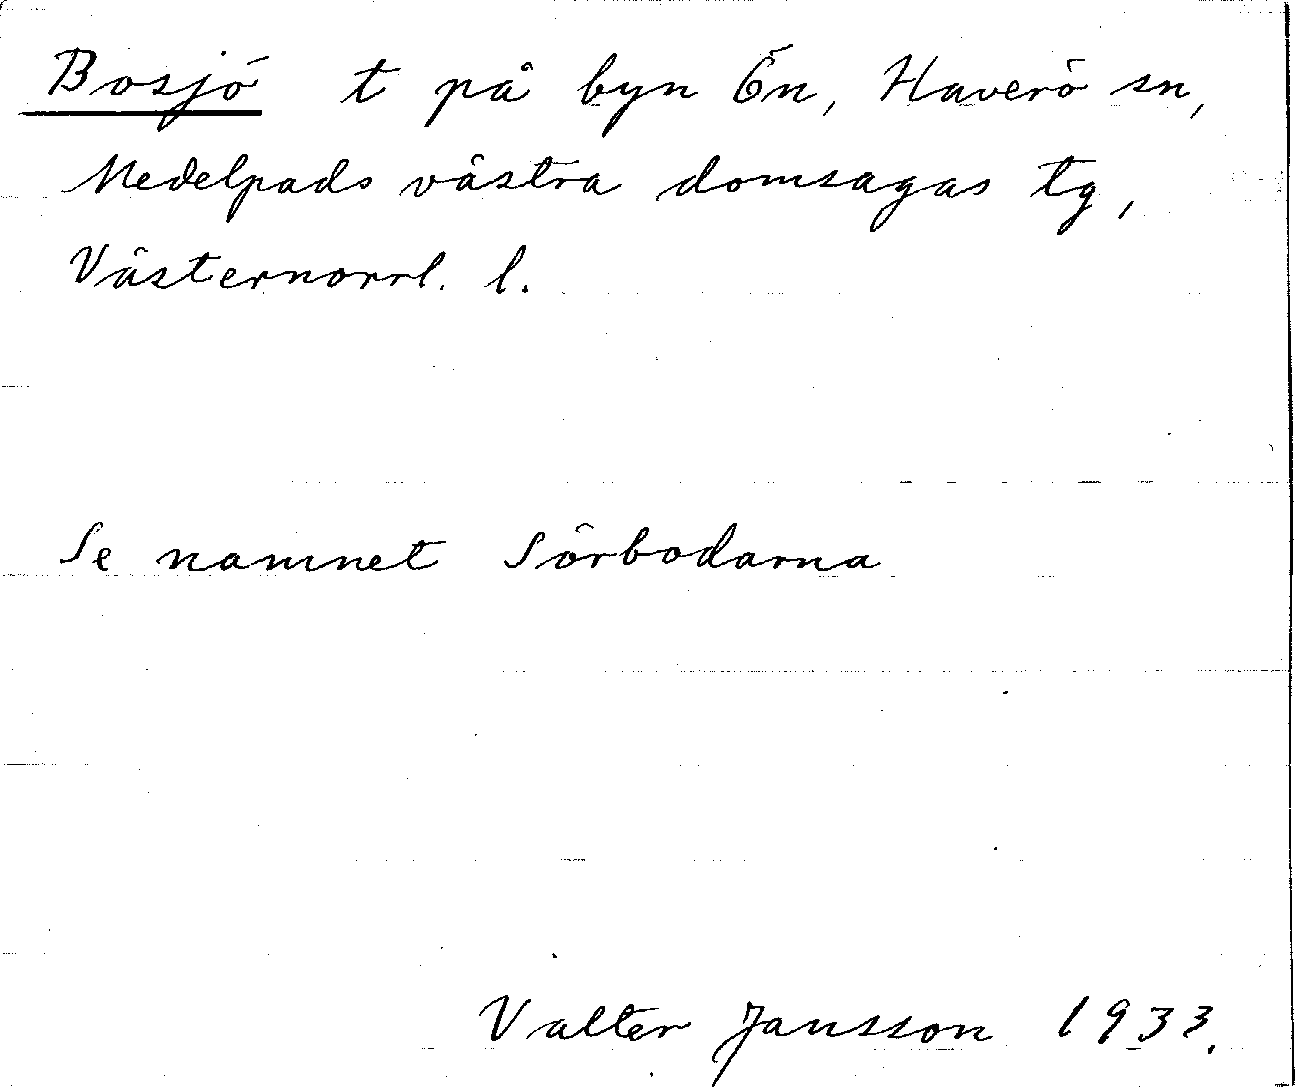 Bosjö t på byn Ön, Haverö sn,
Medelpads västra domsagas tg,
Västernorrl. l.
Se namnet Sörbodarna
Valter Jansson 1933.